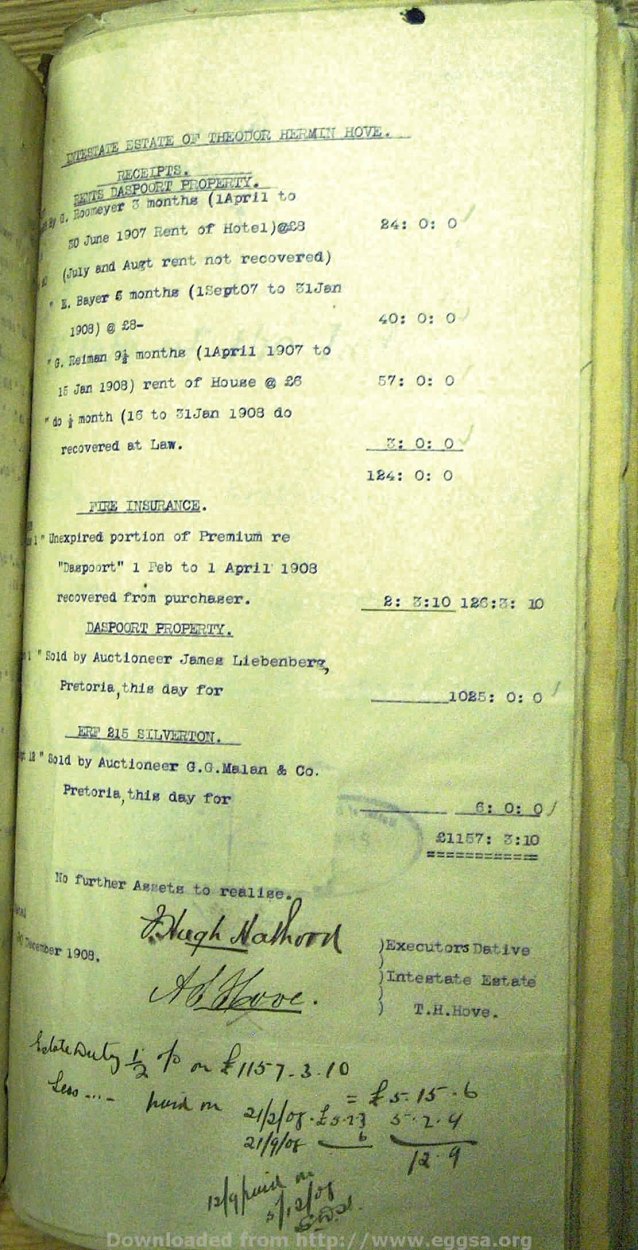 INTESTATE ESTATE OF THEODOR HERMIN HOVE.
RECEIPTS.
RENTS DASPOORT PROPERTY.
By G. Roomeyer 3 months (1April to
30 June 1907 Rent of Hotel)@£8 24: 0: 0
(July and Augt rent not recovered)
" E. Bayer 5 months (1Sept07 to 31Jan
1908) @ £8- 40: 0: 0
" G. Reiman 9½ months (1April 1907 to
15 Jan 1908) rent of House @ £6 57: 0: 0
" do ½ month (16 to 31Jan 1908 do
recovered at Law. 3: 0: 0
124: 0: 0
FIRE INSURANCE.
1 " Unexpired portion of Premium re
"Daspoort" 1 Feb to 1 April 1908
recovered from purchaser. 2: 3:10 126:3: 10
DASPOORT PROPERTY.
1 " Sold by Auctioneer James Liebenberg,
Pretoria,this day for 1025: 0: 0
ERF 215 SILVERTON.
12 " Sold by Auctioneer G.G.Malan & Co.
Pretoria,this day for 6: 0: 0
£1157: 3:10
============
No further Assets to realise.
December 1908.
Hugh
)Executors Dative
)
)Intestate Estate
Hove.
)
) T.H.Hove.
Estate Duty ½ % on £1157.3.10
= £5.15.6
Less .... paid on 21/2/08 . £5. 5.2.4
21/9/08 6
12.9
12/9 paid on
5/12/08
Downloaded from http://www.eggsa.org